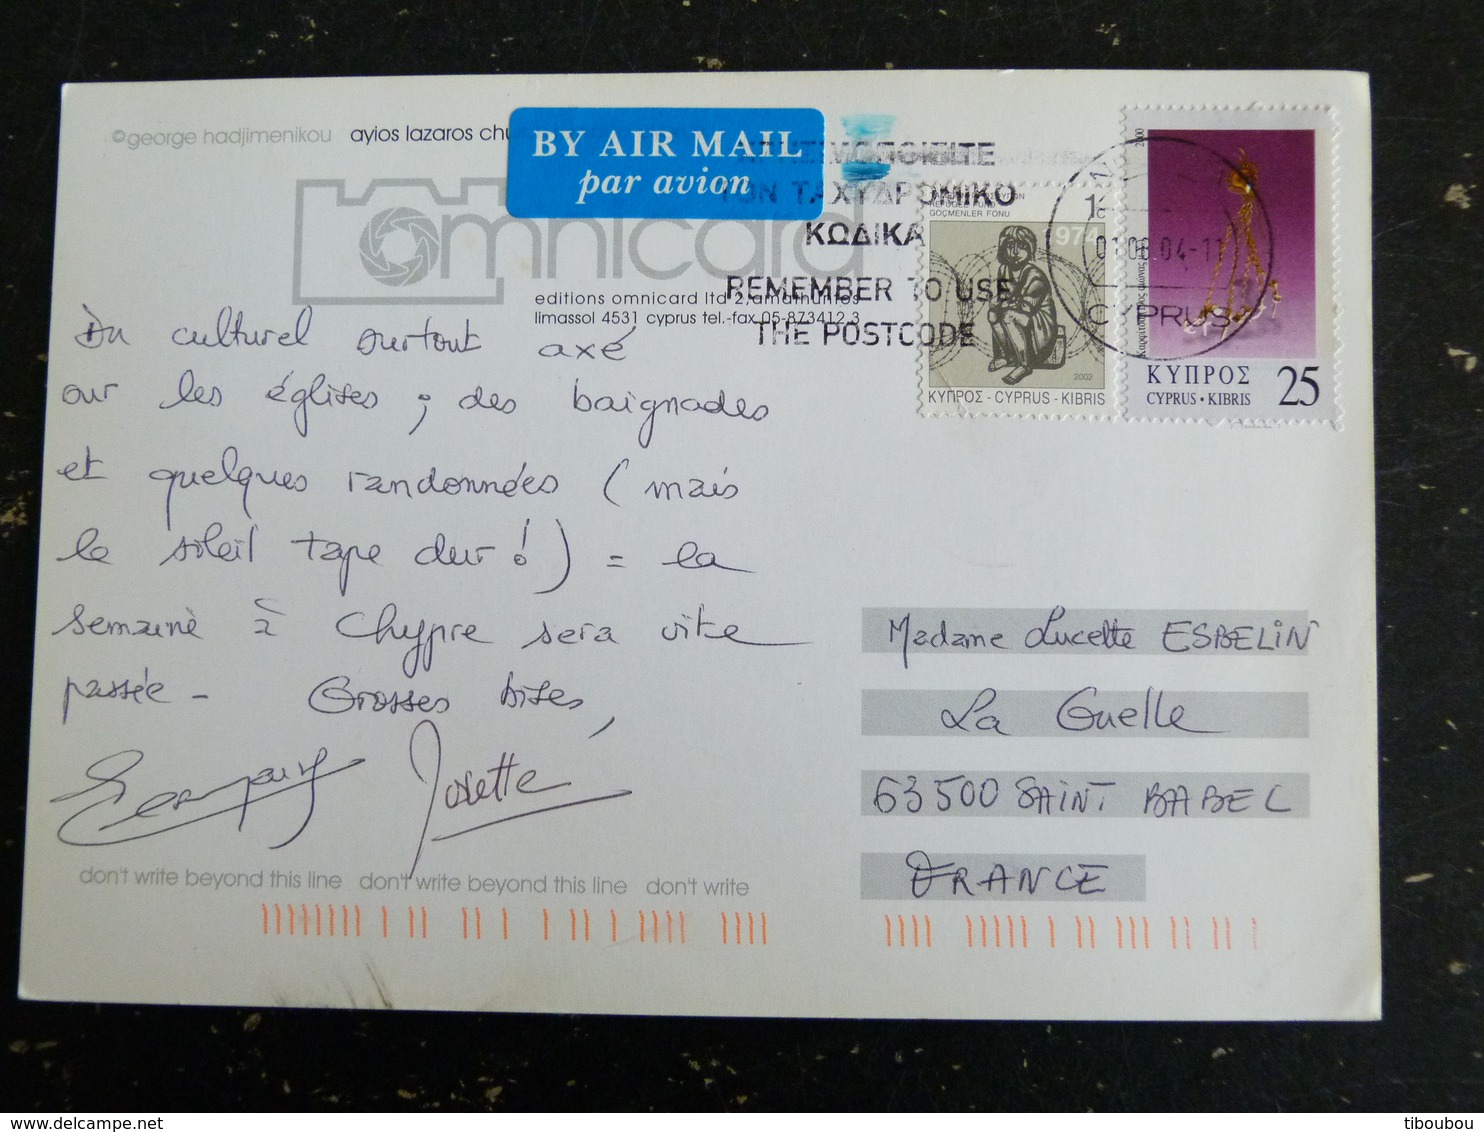 ©george hadjimenikou ayios lazaros
BY AIR MAIL
par avion
omnicard
editions omnicard ltd 2, amathuntos
limassol 4531 cyprus tel.-fax 05-873412,3
Du culturel surtout axé
sur les églises, des baignades
et quelques randonnées (mais
le soleil tape dur!) = la
semaine à Chypre sera vite
passée - Grosses bises,
Josette
don't write beyond this line don't write beyond this line don't write
ΤΟΝ ΤΑΧΥΔΡΟΜΙΚΟ
ΚΩΔΙΚΑ
REMEMBER TO USE
THE POSTCODE
REFUGEE FUND
GÖÇMENLER FONU
1c
1974
2002
ΚΥΠΡΟΣ - CYPRUS - KIBRIS
01.06.04-11
CYPRUS
2000
ΚΥΠΡΟΣ
CYPRUS • KIBRIS
25
Madame Lucette ESBELIN
La Guelle
63500 SAINT BABEL
FRANCE
tiboubou